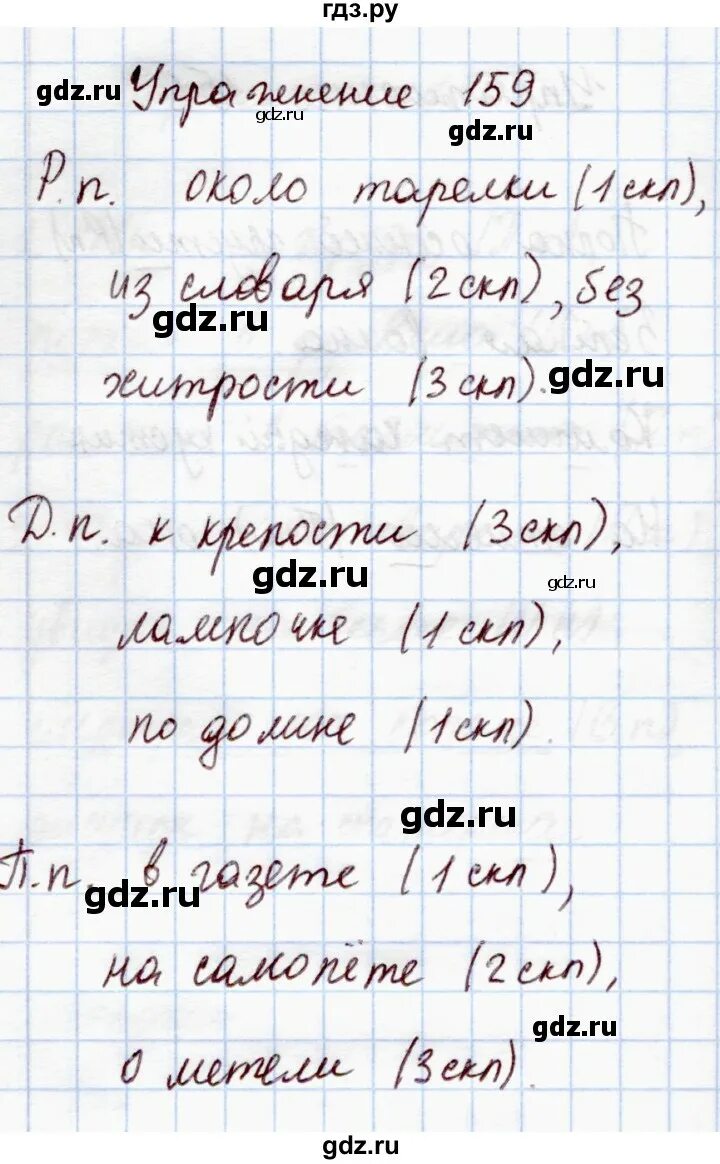 гдз.ру
gdz.ru
Упражнение 159
gdz.ru
Р.п. около тарелки (1 скл),
из словаря (2 скл), без
gdz.ru
хитрости (3 скл).
gdz.ru
Д.п. к крепости (3 скл),
gdz.ru
gdz.ru
лампочке (1 скл),
по долине (1 скл).
gdz.ru
П.п. в газете (1 скл),
gdz.ru
на самолёте (2 скл),
gdz.ru
о метели (3 скл).
gdz.ru